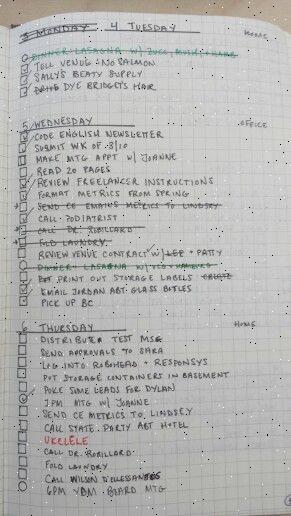 3 MONDAY 4 TUESDAY HOME
DINNER: LASAGNA W/ ZUCC, MUSH, + HAMB
TELL VENUE: NO SALMON
SALLY'S BEATY SUPPLY
DRIVE DYE BRIDGET'S HAIR
5 WEDNESDAY OFFICE
CODE ENGLISH NEWSLETTER
SUBMIT WK OF 3/10
MAKE MTG APPT W/ JOANNE
READ 20 PAGES
REVIEW FREELANCER INSTRUCTIONS
FORMAT METRICS FROM SPRING
SEND CE EMAILS METRICS TO LINDSEY
CALL PODIATRIST
CALL DR. ROBILLARD
FOLD LAUNDRY
REVIEW VENUE CONTRACT W/ LEE + PATTY
DINNER: LASAGNA W/
PRINT OUT STORAGE LABELS
EMAIL JORDAN ABT GLASS BOTLES
PICK UP BC
6 THURSDAY HOME
DISTRIBUTE TEST MSG
SEND APPROVALS TO SARA
LOG INTO ROBOHEAD + RESPONSYS
PUT STORAGE CONTAINERS IN BASEMENT
POKE SIME LEADS FOR DYLAN
3PM MTG W/ JOANNE
SEND CE METRICS TO LINDSEY
CALL STATE PARTY ABT HOTEL
UKELELE
CALL DR. ROBILLARD
FOLD LAUNDRY
CALL WILSON
6PM YDM BOARD MTG